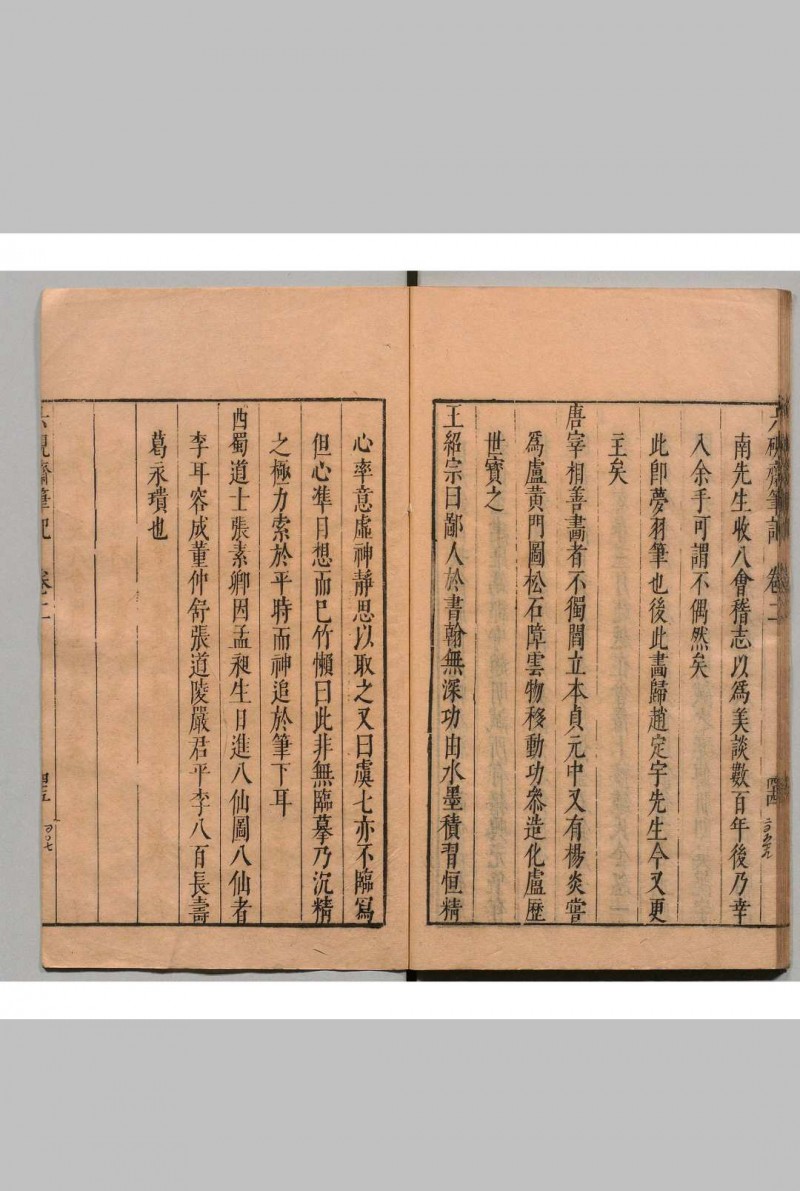 六硯齋筆記 卷二
南先生收八會稽志以為美談數百年後乃幸
入余手可謂不偶然矣
此卽夢羽筆也後此畵歸趙定宇先生今又更
主矣
唐宰相善畵者不獨閻立本貞元中又有楊炎嘗
為盧黃門圖松石障雲物移動功叅造化盧歷
世寳之
王紹宗曰鄙人於書翰無深功由水墨積習恒精
心率意虛神靜思以取之又曰虞七亦不臨寫
但心準目想而已竹懶曰此非無臨摹乃沉精
之極力索於平時而神追於筆下耳
西蜀道士張素卿因孟昶生日進八仙圖八仙者
李耳容成董仲舒張道陵嚴君平李八百長壽
葛永璝也
硯齋筆記 卷二